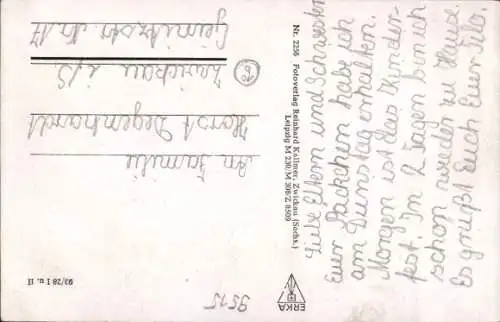 Liebe Eltern und Schwester
Euer Päckchen habe ich
am Dienstag erhalten.
Morgen ist das Kinder-
fest. In 2 Tagen bin ich
schon wieder zu Haus.
Es grüßt Euch Euer Tilo.
Nr. 2256 Fotoverlag Reinhard Kallmer, Zwickau (Sachs.)
Leipzig M 230/M 306/Z 8509
ERKA
An Familie
Horst Degenhardt
Zwickau i/S.
Nr. 17
93/28 I u. II
9515